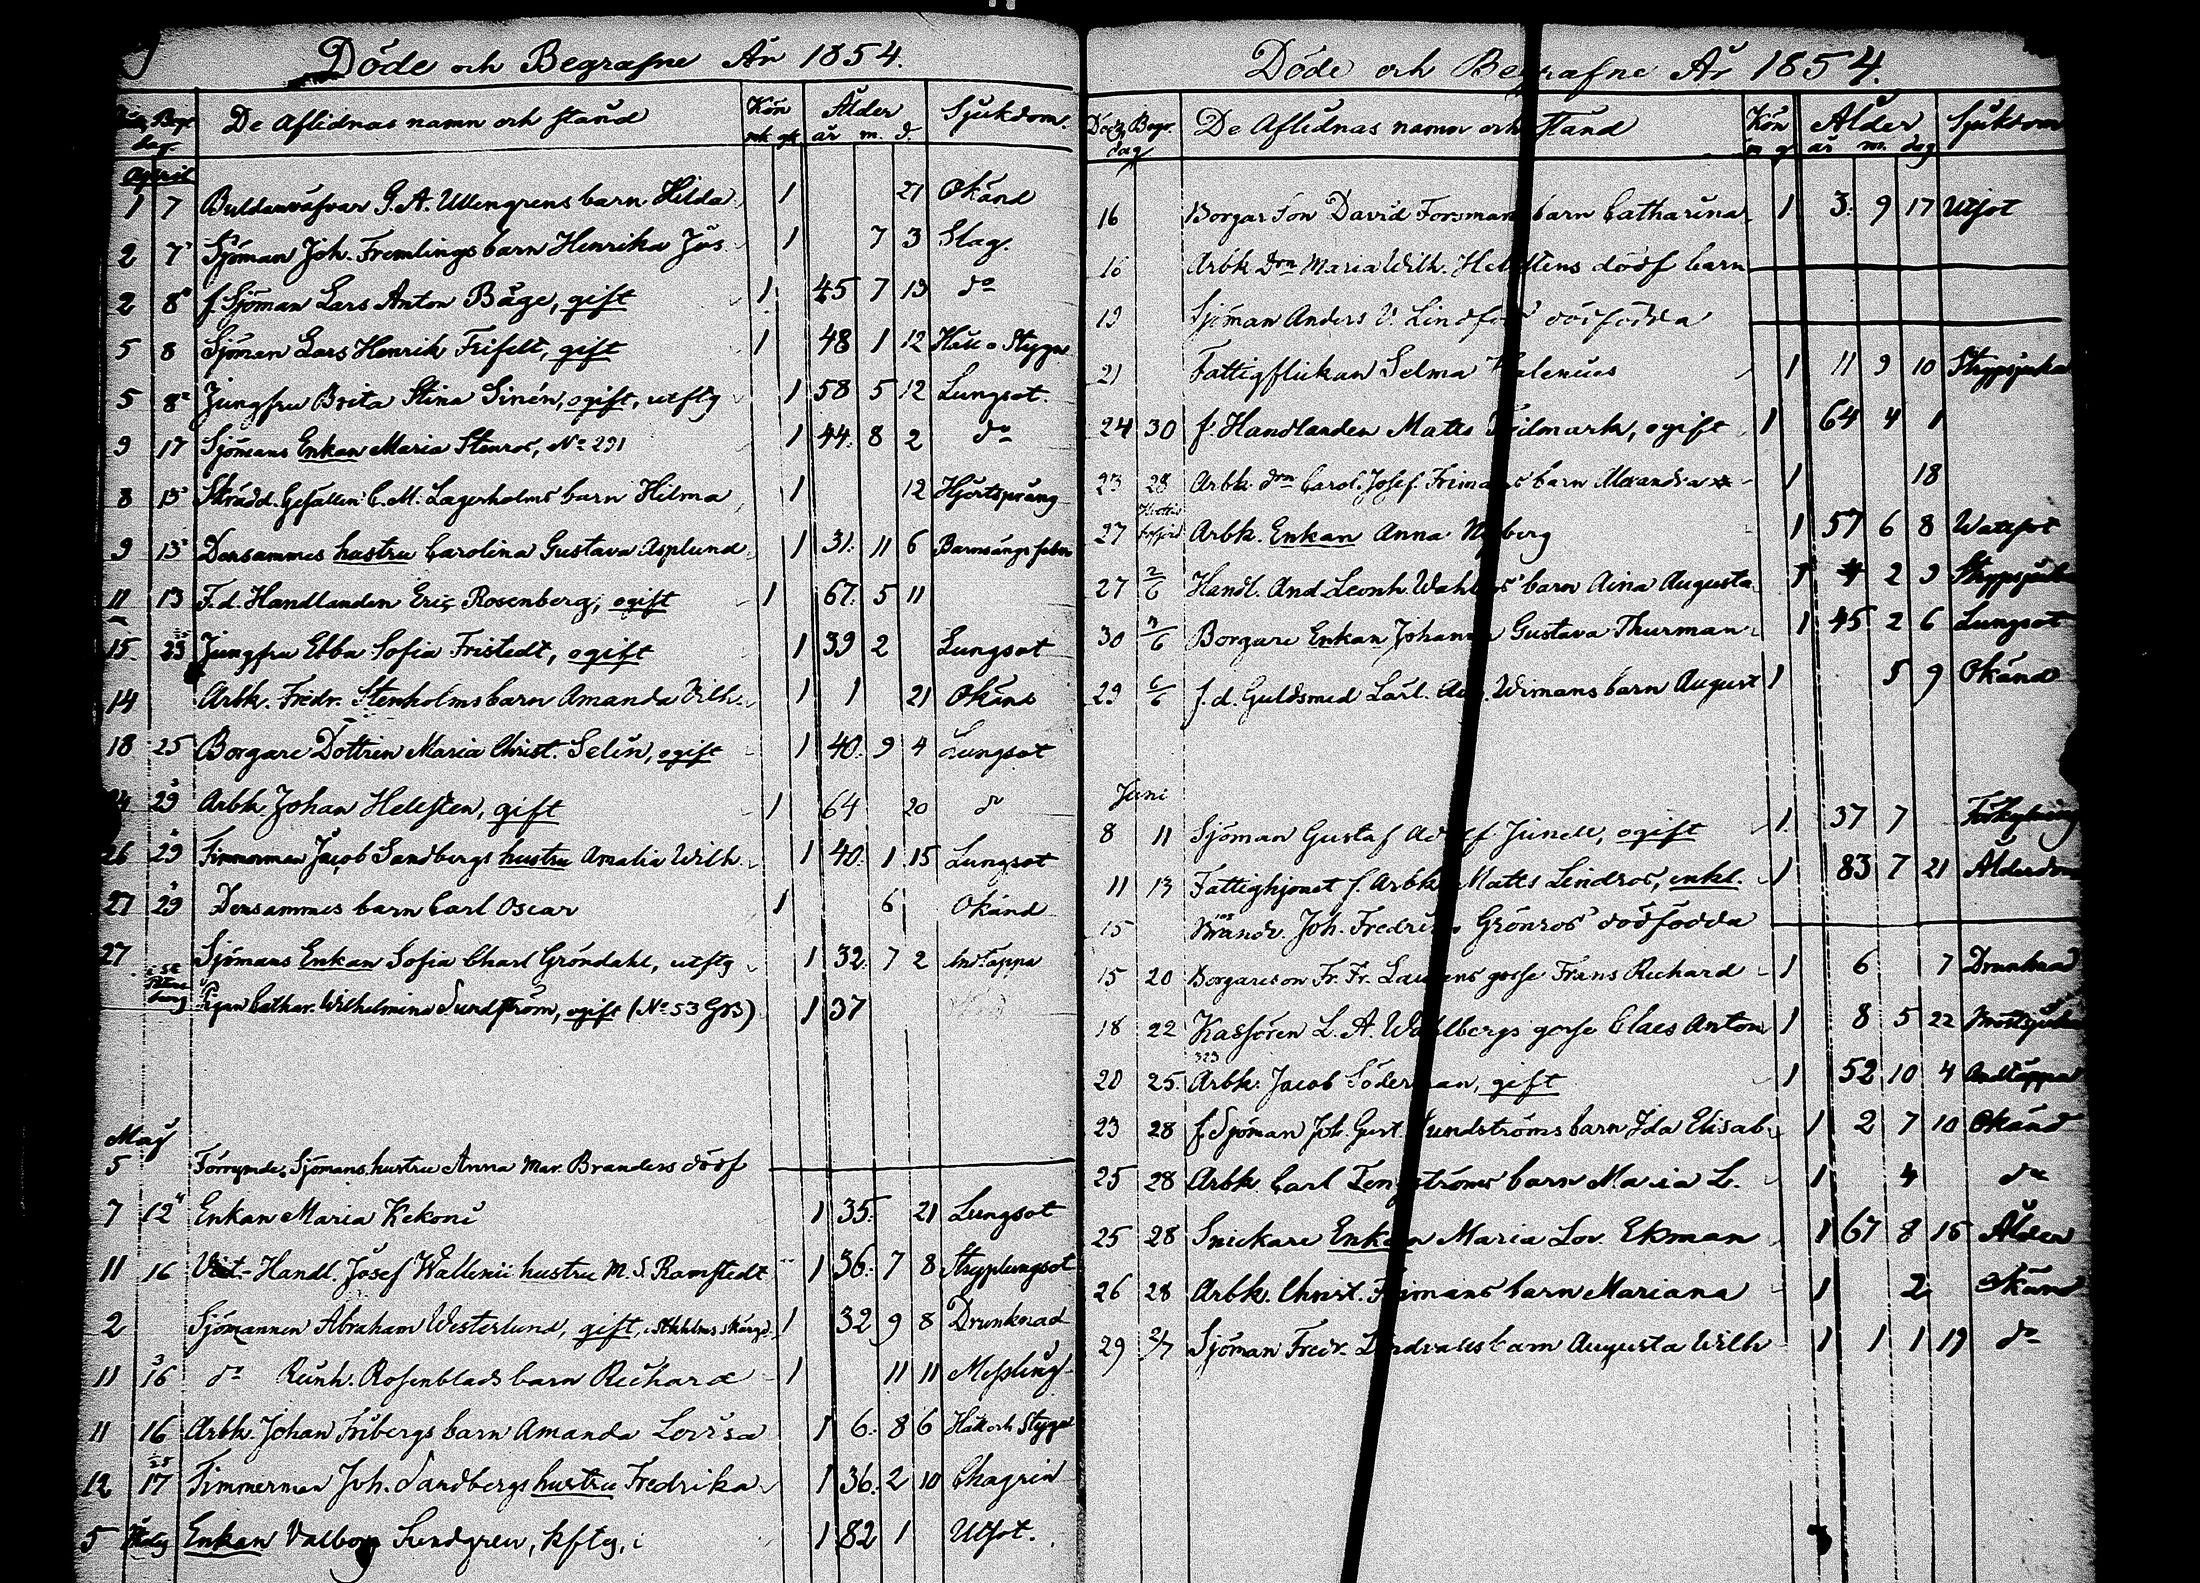 Döde och Begrafne År 1854.
Begr.
dag.
De Aflidnas namn och stånd
Kön
mk qk
Ålder
år m. d.
Sjukdom.
April
1 7 Buldanväfvar G. A. Ullengrens barn Hilda 1 21 Okänd
2 7 Sjöman Joh. Fremlings barn Henrika Jus 1 7 3 Slag.
2 8 f. Sjöman Lars Anton Båge, gift 1 45 7 19 do
5 8 Sjöman Lars Henrik Frifelt, gift 1 48 1 12 Håll o Styng
5 8 Jungfru Brita Stina Sinén, ogift, utftg 1 58 5 12 Lungsot.
9 17 Sjömans Enkan Maria Stenros, No 291 1 44 8 2 do
8 15 Skrädd. Gesällen C. M. Lagerholms barn Hilma 1 12 Hjertsprång
9 15 Densammes hustru Carolina Gustava Asplund 1 31 11 6 Barnsängsfeber
11 13 F. d. Handlanden Eric Rosenberg, ogift 1 67 5 11
15 23 Jungfru Ebba Sofia Fristedt, ogift 1 39 2 Lungsot
14 Arbk. Fredr. Stenholms barn Amanda Vilh. 1 1 21 Okänd
18 25 Borgare Dottren Maria Christ. Selin, ogift 1 40 9 4 Lungsot
24 29 Arbk. Johan Hellsten, gift 1 64 20 do
26 29 Timmerman Jacob Sandbergs hustru Amalia Wilh. 1 40 1 15 Lungsot
27 29 Densammes barn Carl Oscar 1 6 Okänd
27 Sjömans Enkan Sofia Charl Gröndahl, utftg 1 32 7 2 Andtäppa
Pigan Cathar. Wilhelmina Sundström, ogift (No 53 GB) 1 37
Maj
5 Förrymde Sjömans hustru Anna Mar. Branders dödf
7 12 Enkan Maria Kekoni 1 35 21 Lungsot
11 16 Vict. Handl. Josef Wallenii hustru M. S. Ramstedt 1 36 7 8 Stryplungsot
2 Sjömannen Abraham Westerlund, gift, i Stkhlms skärgd 1 32 9 8 Drunknad
11 16 do Reinh. Rosenblads barn Richard 1 11 11 Messling
11 16 Arbk. Johan Fribergs barn Amanda Lovisa 1 6 8 6 Håll och Styng
12 17 Timmerman Joh. Sandbergs hustru Fredrika 1 36 2 10 Chagrin
5 Enkan Valborg Sundgren, kftg, i 1 82 1 Utsot.
Döde och Begrafne År 1854.
Död Begr.
dag
De Aflidnas namn och stånd
Kön
m q
Ålder
år m. dag
Sjukdom
16 Borgar Son David Forsmans barn Catharina 1 3 9 17 Utsot
16 Arbk. drn Maria Wilh. Hellstens dödf barn
19 Sjöman Anders V. Lindfors dödfödda
21 Fattigflickan Selma Walenius 1 11 9 10 Strypsjuka
24 30 f. Handlanden Matts Fridmark, ogift 1 64 4 1
23 28 Arbk. drn Carol. Josef. Frimans barn Alexandra 1 18
27 Arbk. Enkan Anna Nyberg 1 57 6 8 Wattsot
27 2/6 Handl. And. Leonh. Wahlbergs barn Aina Augusta 1 4 2 9 Strypsjuka
30 3/6 Borgare Enkan Johanna Gustava Thurman 1 45 2 6 Lungsot
29 6/6 f. d. Guldsmed Carl Aug. Wimans barn August 1 5 9 Okänd
Juni
8 11 Sjöman Gustaf Adolf Junell, ogift 1 37 7 Förkylning
11 13 Fattighjonet f. Arbk. Matts Lindros, enkl. 1 83 7 21 Ålderdom
15 Joh. Fredrik Grönros' dödfödda
15 20 Borgareson Fr. Fr. Laurens gosse Frans Richard 1 6 7 Drunknad
18 22 Kassören L. A. Wahlbergs gosse Claes Anton 1 8 5 22 Bröstsjuka
323
20 25 Arbk. Jacob Söderman, gift 1 52 10 4 Andtäppa
23 28 f. Sjöman Joh. Gust. Sundströms barn Ida Elisab. 1 2 7 10 Okänd
25 28 Arbk. Carl Tengströms barn Maria L. 1 4 do
25 28 Snickare Enkan Maria Lov. Ekman 1 67 8 15 Ålder
26 28 Arbk. Christ. Frimans barn Mariana 1 2 Okänd
29 2/7 Sjöman Fredr. Lindvalls barn Augusta Wilh 1 1 1 19 do